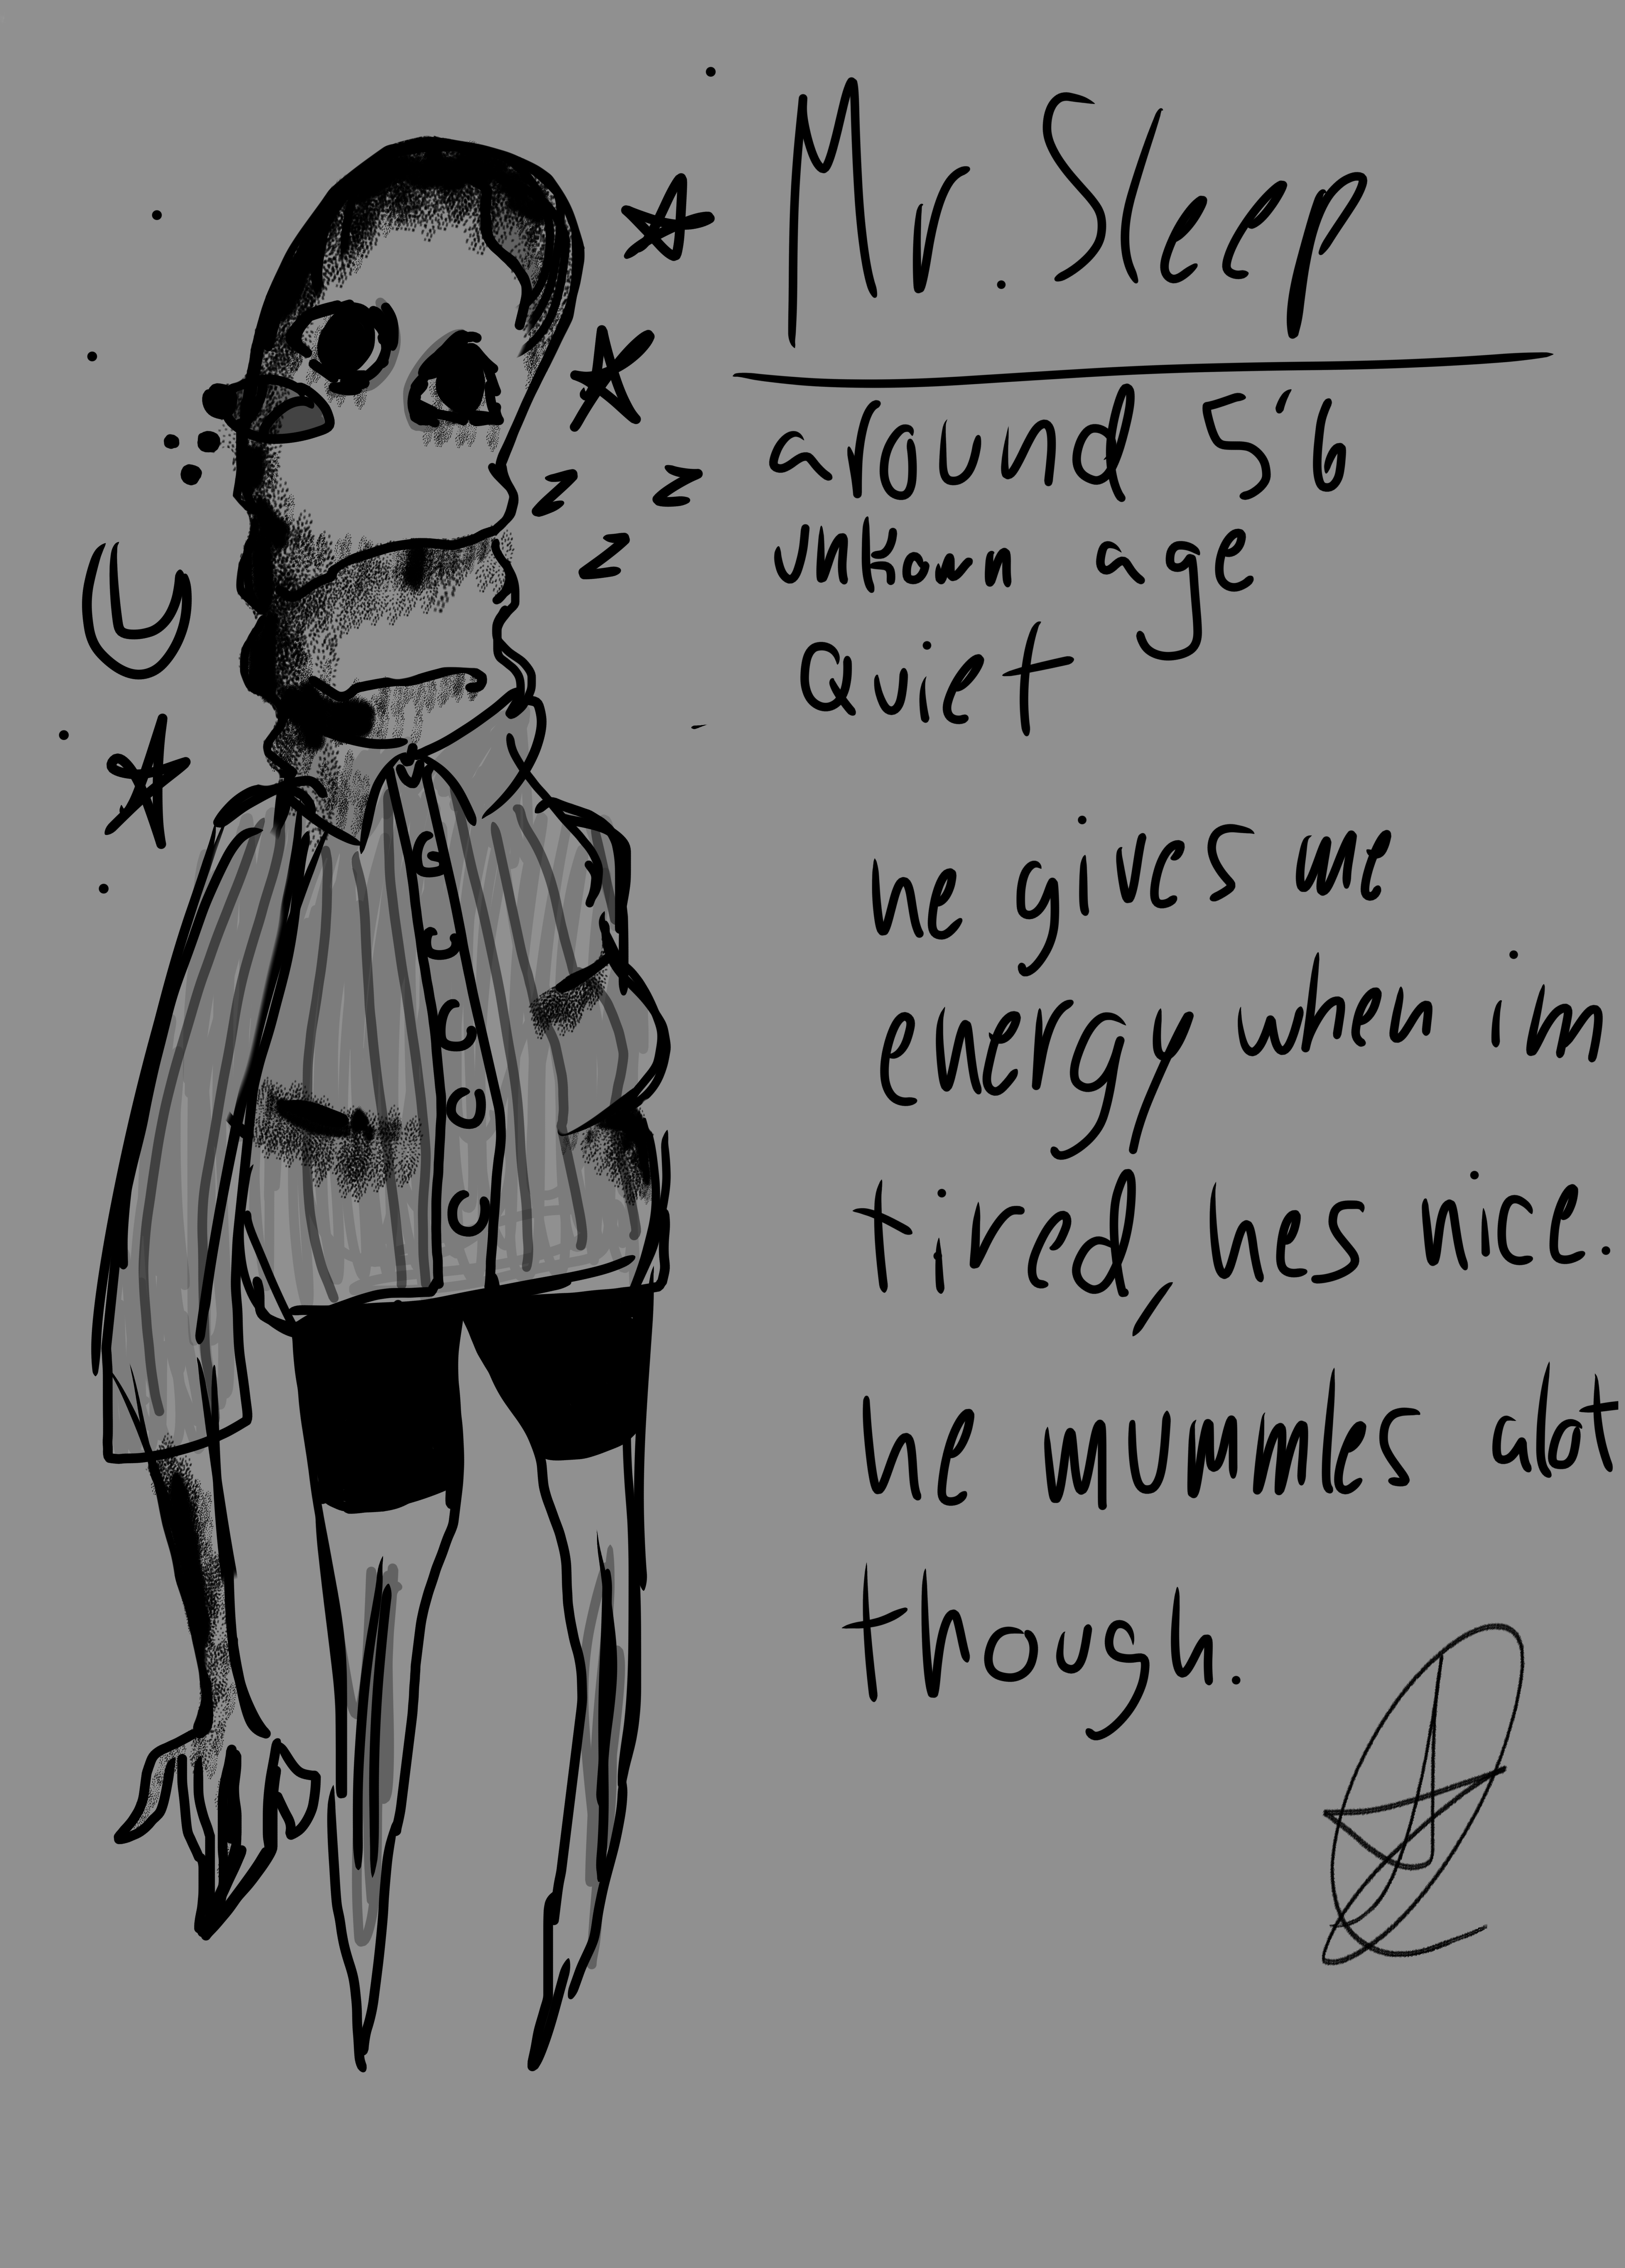 Mr. Sleep
around 5'6
unkown age
Quiet
he gives me
energy when im
tired, hes nice.
he mumbles alot
though.
z z
z